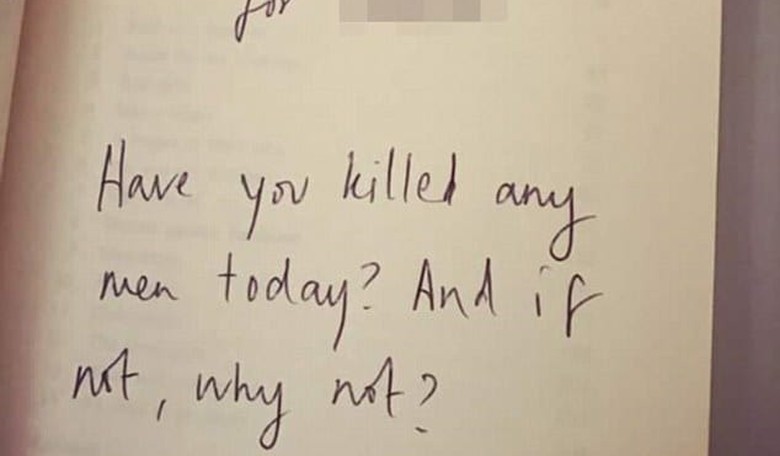 for
Have you killed any
men today? And if
not, why not?